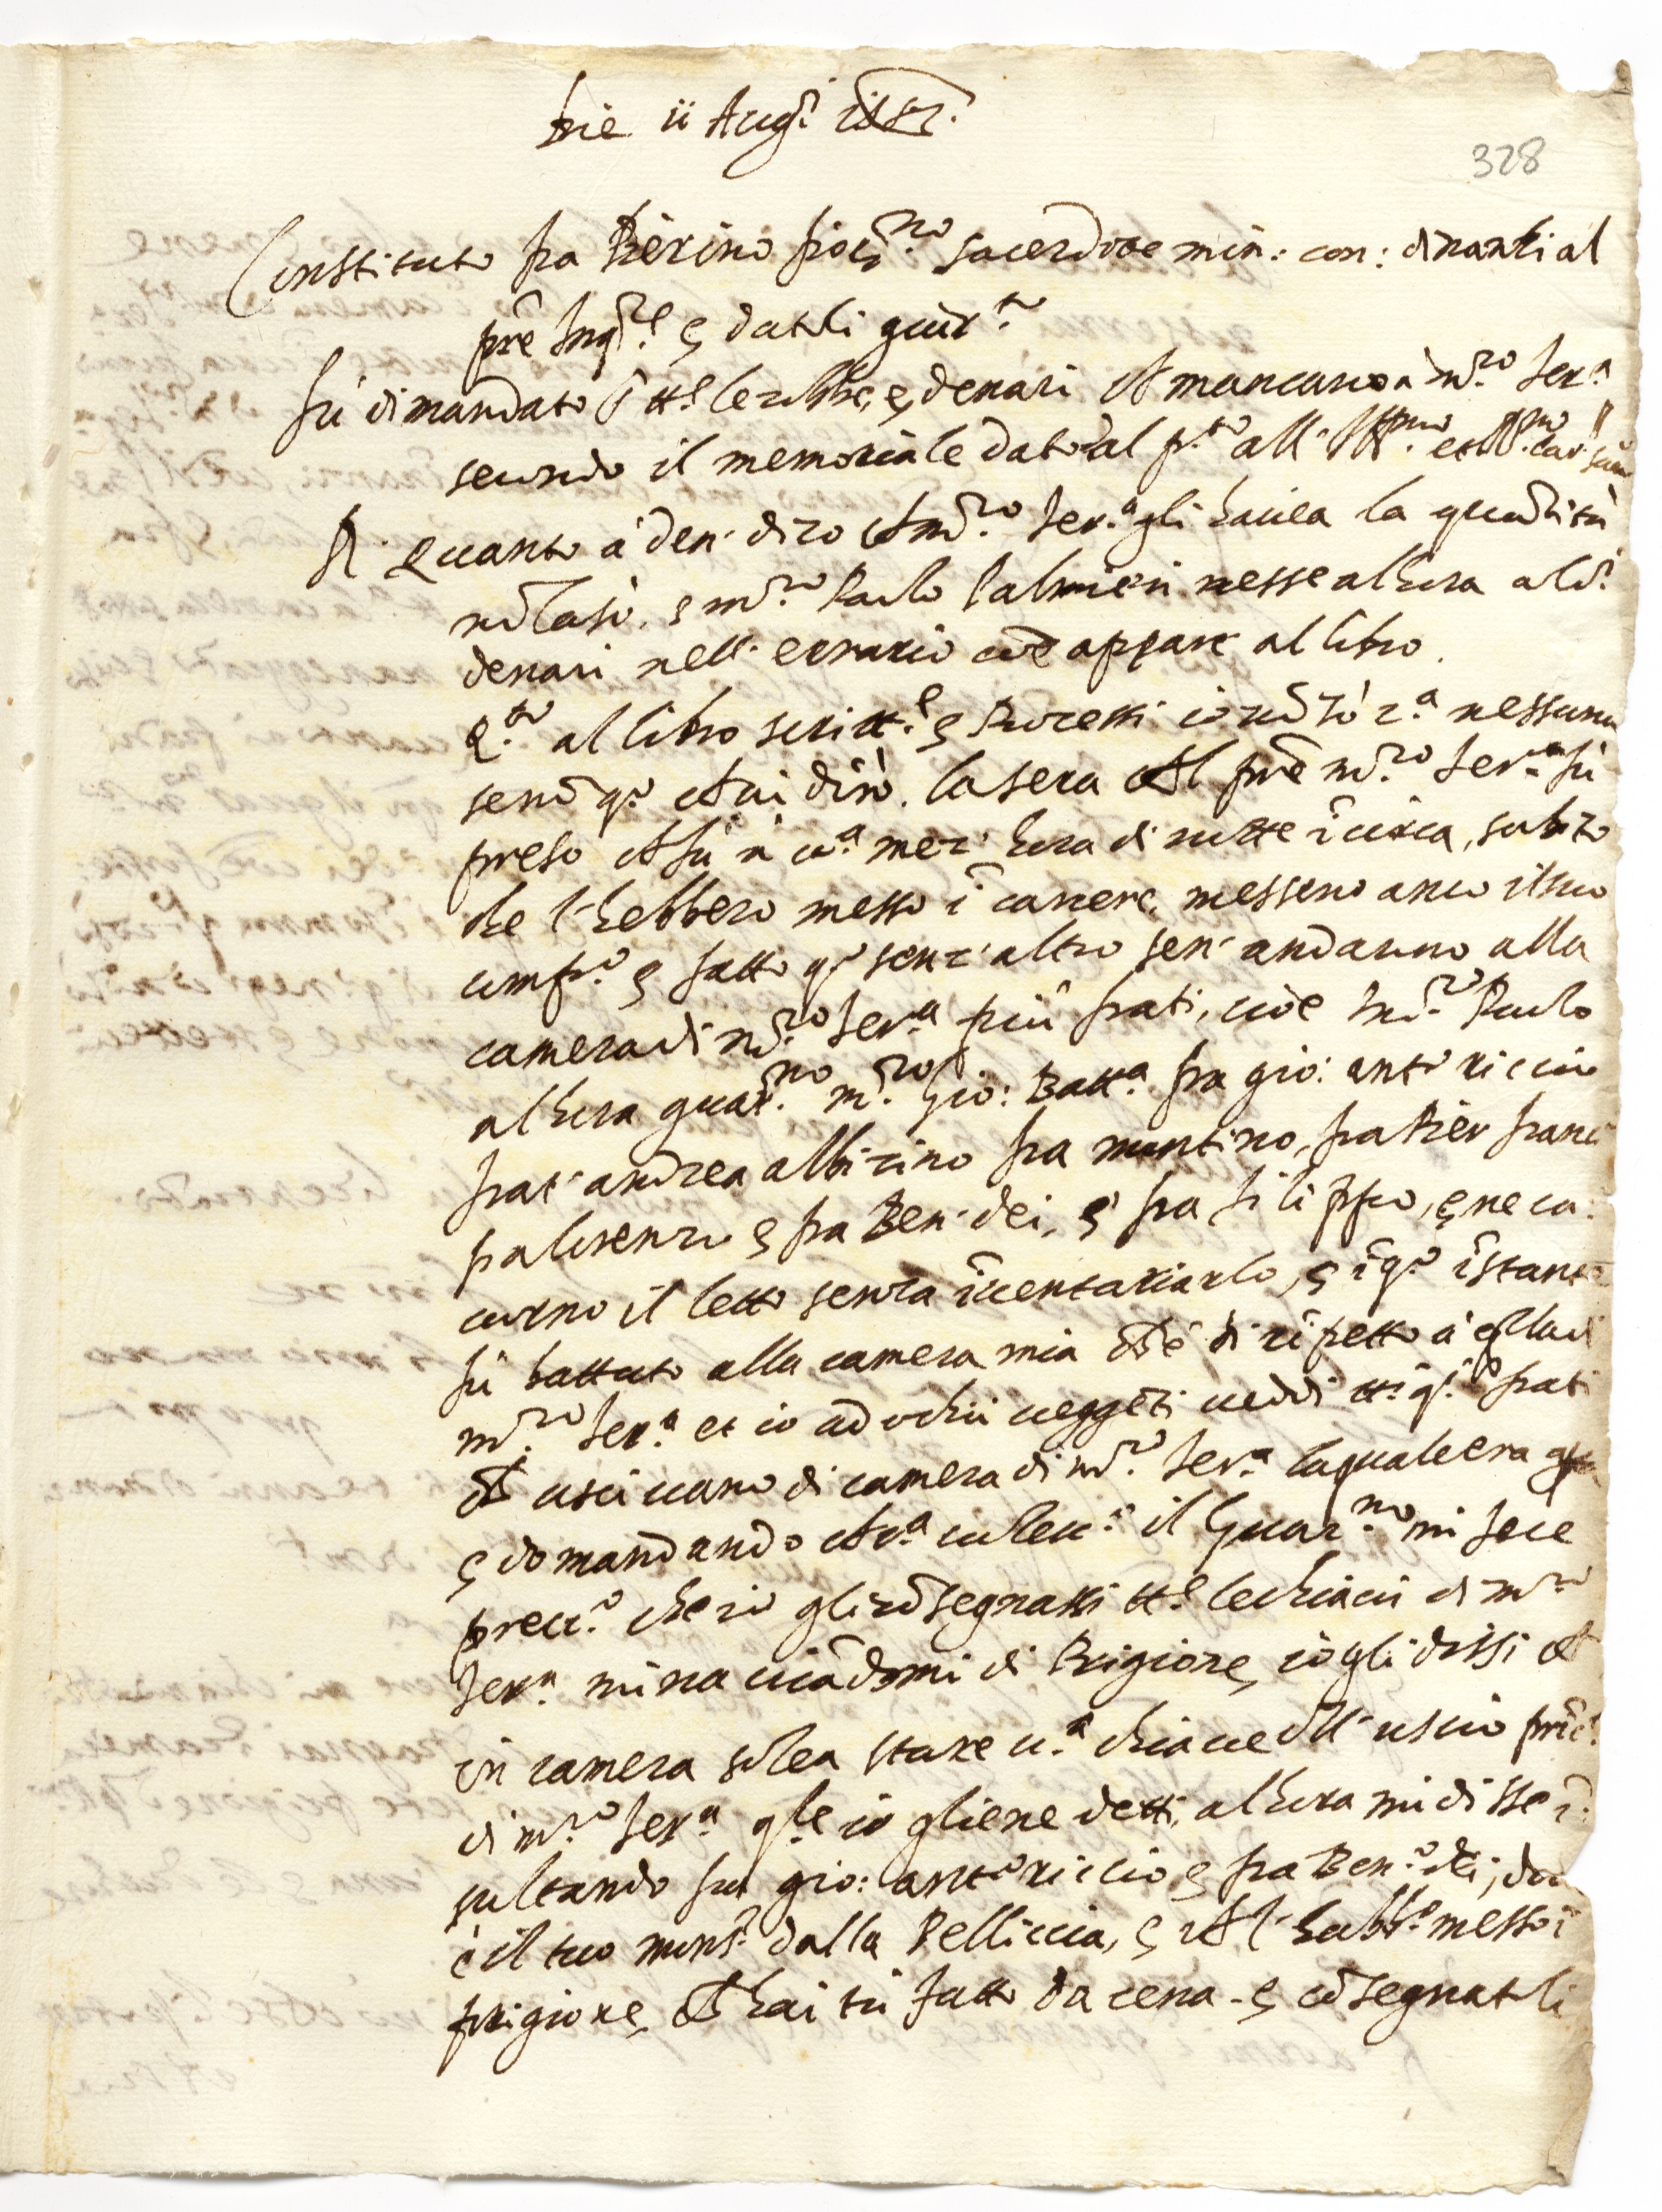 Die ii Aug.i
328
Constituto fra Pierino fior.no sacerdote min: con: dinanzi al
prē Inq.re e datoli giur.to
fù dimandato ꝑ tt.e le robbe, e denari ch mancano à m.ro Ser.a
secondo il memoriale dato dal p.to all' Ill.mo et R.mo Car.
R. Quanto à den. dico ch m.ro Ser.a gli havea la quātità
nō la sò. e m.ro Paulo Palmieri messe alhora ald.i
denari nell' errario coē appare al libro.
Q.to al libro scritt.e e Processi io nō sò c.a nessuna
senō q.o ch vi dirò. la sera ch l prē m.ro Ser.a fù
preso ch fù à u.a mez' hora di notte ī circa, subito
che l' hebbero messo ī carcere, messeno anco il suo
comp.o e fatto q.o senz' altro sen' andarno alla
camera di m.ro Ser.a più frati, cioè m.ro Paulo
alhora guar.no m.ro Gio: Batt.a fra gio: ant.o riccio
frat' andrea albizino fra mantino, fra Pier franc.
e fra Ben. dei, e fra filippo, e ne ca:
vorno il letto senza īventariarlo, e ī q.o īstante
fù battuto alla camera mia ch è di rīpetto à qlla di
m.ro Ser.a et io ad ochii veggēti veddi tt.i q.i frati
ch uscivano di camera di m.ro Ser.a la quale era
e domandando ch c.a volev.o il Guar.no mi fece
prec.o che io gli cōsegnassi tt.e le chiavi di m.ro
Ser.a minacciādomi di Prigione, io gli dissi ch
in camera solea stare u.a chiave dll' uscio prīc.
di m.ro Ser.a q.le io gliene detti, alhora mi disse ī:
sultando fra gio: ant.o riccio e fra Ben.o dei; dov
è il tuo mons.r dalla Pelliccia, e ch l' habb.o messo ī
prigione, ch hai tù fatto da cena - e cōsegnatoli